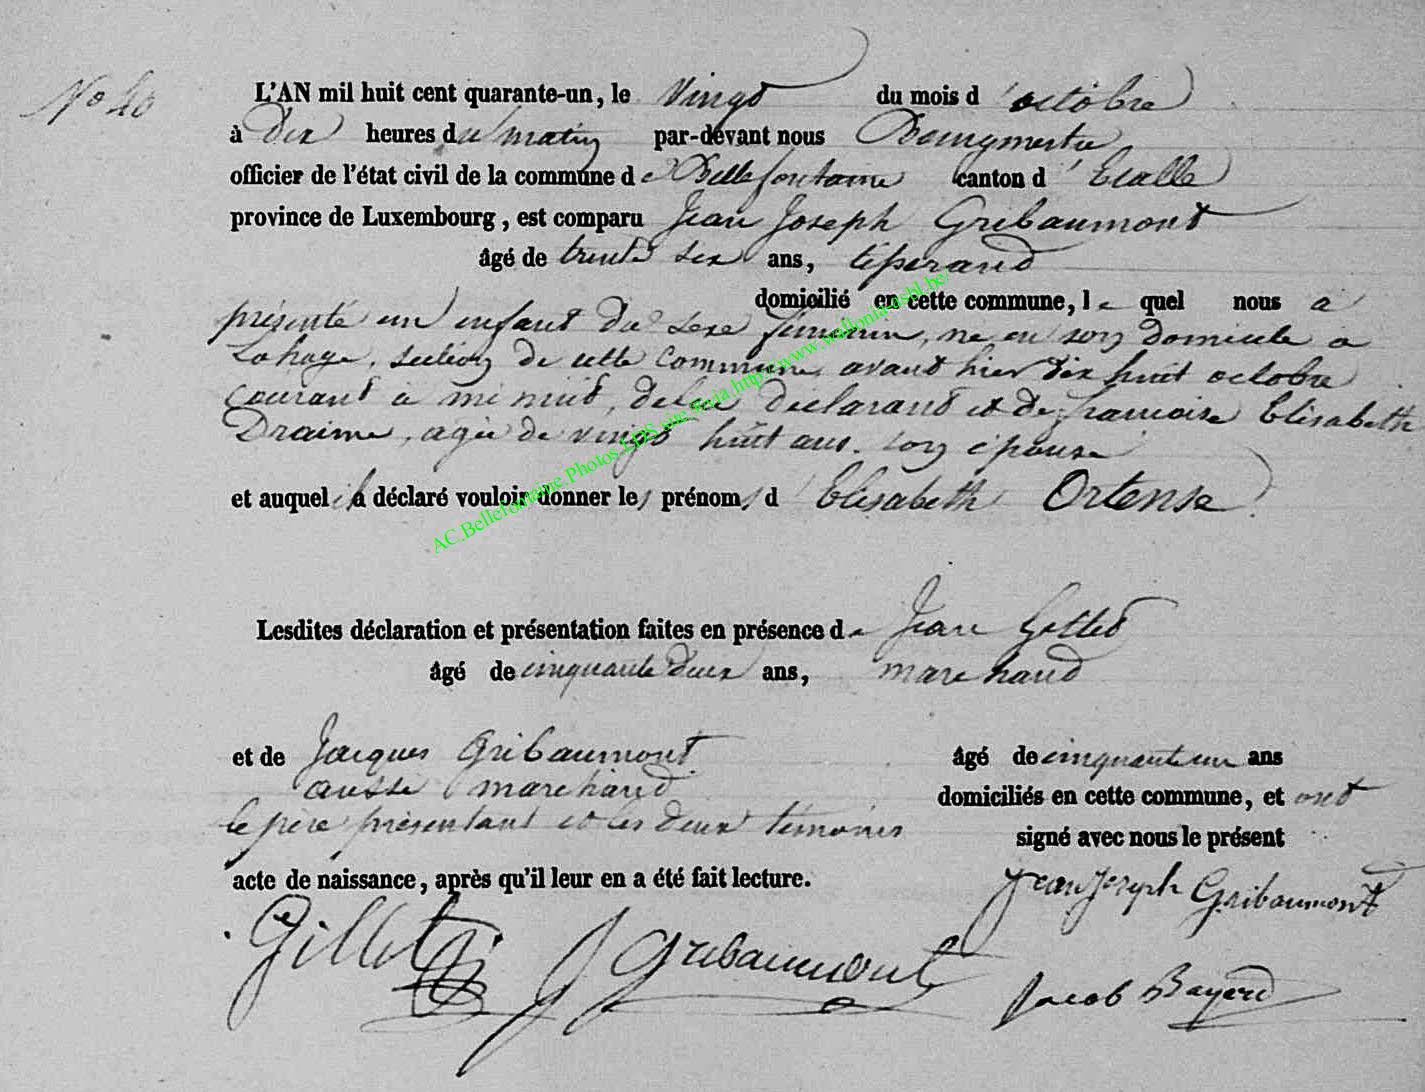 No 40
L'AN mil huit cent quarante-un, le vingt du mois d'octobre
à Dix heures du matin par-devant nous Bourgmestre
officier de l'état civil de la commune de Bellefontaine canton d'Etalle
province de Luxembourg, est comparu Jean Joseph Gribaumont
âgé de trente six ans, tisserand
domicilié en cette commune, le quel nous a
présenté un enfant du sexe féminin, né en son domicile a
Lahage, section de cette commune, avant hier dix huit octobre
courant à mi nuit, de lui déclarant et de francoise Elisabeth
Draime, agée de vingt huit ans. son épouse
et auquel il a déclaré vouloir donner les prénoms d Elisabeth Ortense
AC.Bellefontaine.Photos.LDS.site.Geria.http://www.wallonia-asbl.be/
Lesdites déclaration et présentation faites en présence de Jean Gillet
âgé de cinquante deux ans, marchand
et de Jacques Gribaumont âgé de cinquante un ans
aussi marchand domiciliés en cette commune, et ont
le père présentant et les deux témoins signé avec nous le présent
acte de naissance, après qu'il leur en a été fait lecture.
Jean Joseph Gribaumont
Gillet J Gribaumont
Jacob Bayard